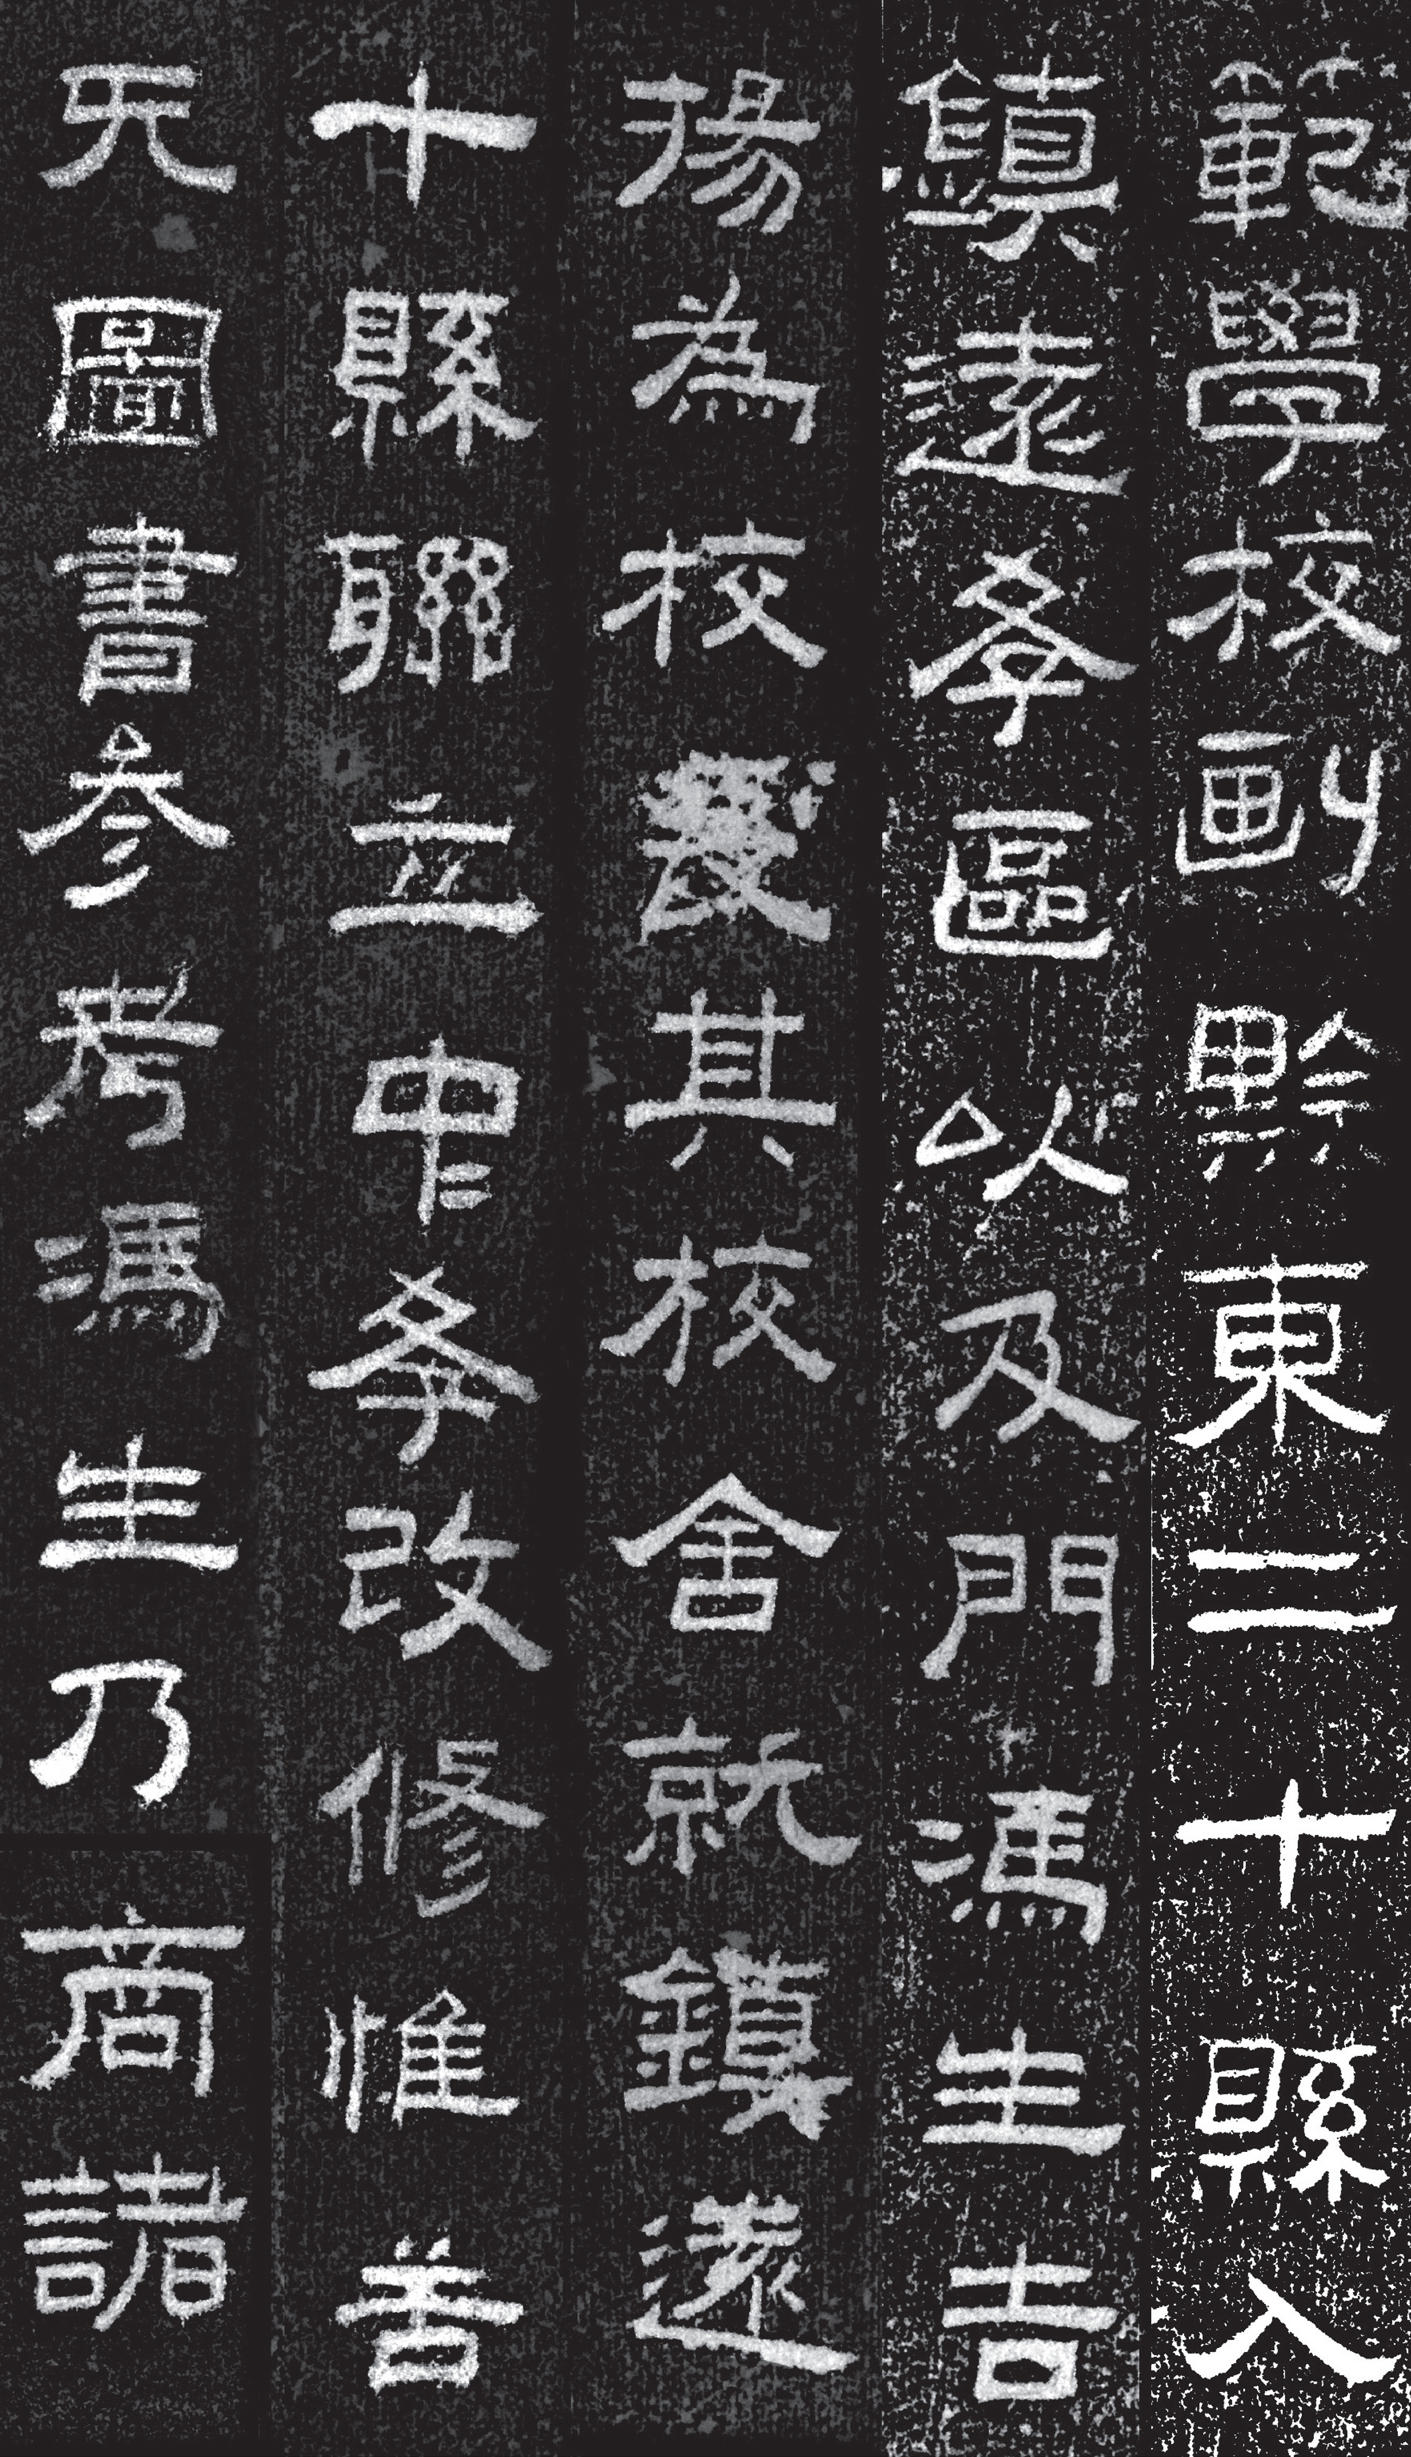 範學校劃黔東二十縣入
鎮遠學區以及門馮生吉
揚為校長其校舍就鎮遠
十縣聯立中學改修惟昔
无圖書參考馮生乃商諸